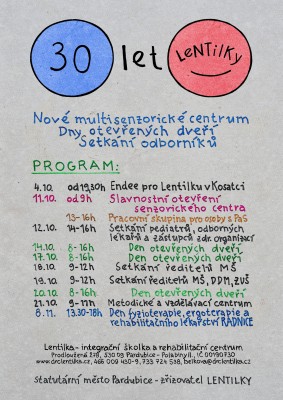 30 let LeNTiLKy
Nové multisenzorické centrum
Dny otevřených dveří
Setkání odborníků
PROGRAM:
4.10. od 19,30h Endee pro Lentilku v Kosatci
11.10. od 9h Slavnostní otevření
senzorického centra
13-16h Pracovní skupina pro osoby s PaS
12.10. 14-16h Setkání pediatrů, odborných
lékařů a zástupců zdr. organizací
14.10. 8-16h Den otevřených dveří
17.10. 8-16h Den otevřených dveří
18.10. 9-12h Setkání ředitelů MŠ
19.10. 9-12h Setkání ředitelů MŠ, DDM, ZUŠ
20.10. 8-16h Den otevřených dveří
21.10. 9-11h Metodické a vzdělávací centrum
8.11. 13.30-18h Den fyzioterapie, ergoterapie a
rehabilitačního lékařství RADNICE
Lentilka - integrační školka a rehabilitační centrum
Prodloužená 278, 530 09 Pardubice - Polabiny II., IČ 00190730
www.drclentilka.cz, 466 009 430-9, 733 724 538, belkova@drclentilka.cz
Statutární město Pardubice - zřizovatel LENTILKY